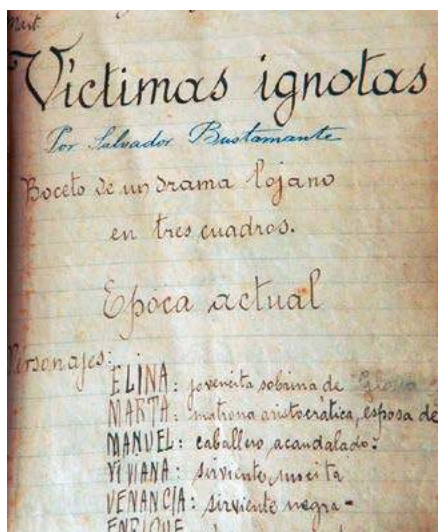 Víctimas ignotas
Por Salvador Bustamante
Boceto de un drama lojano
en tres cuadros.
Epoca actual
Personajes:
ELINA: jovencita sobrina de Gloria
MARTA: matrona aristocrática, esposa de
MANUEL: caballero acaudalado:
VIVIANA: sirviente
VENANCIA: sirviente negra-
ENRIQUE